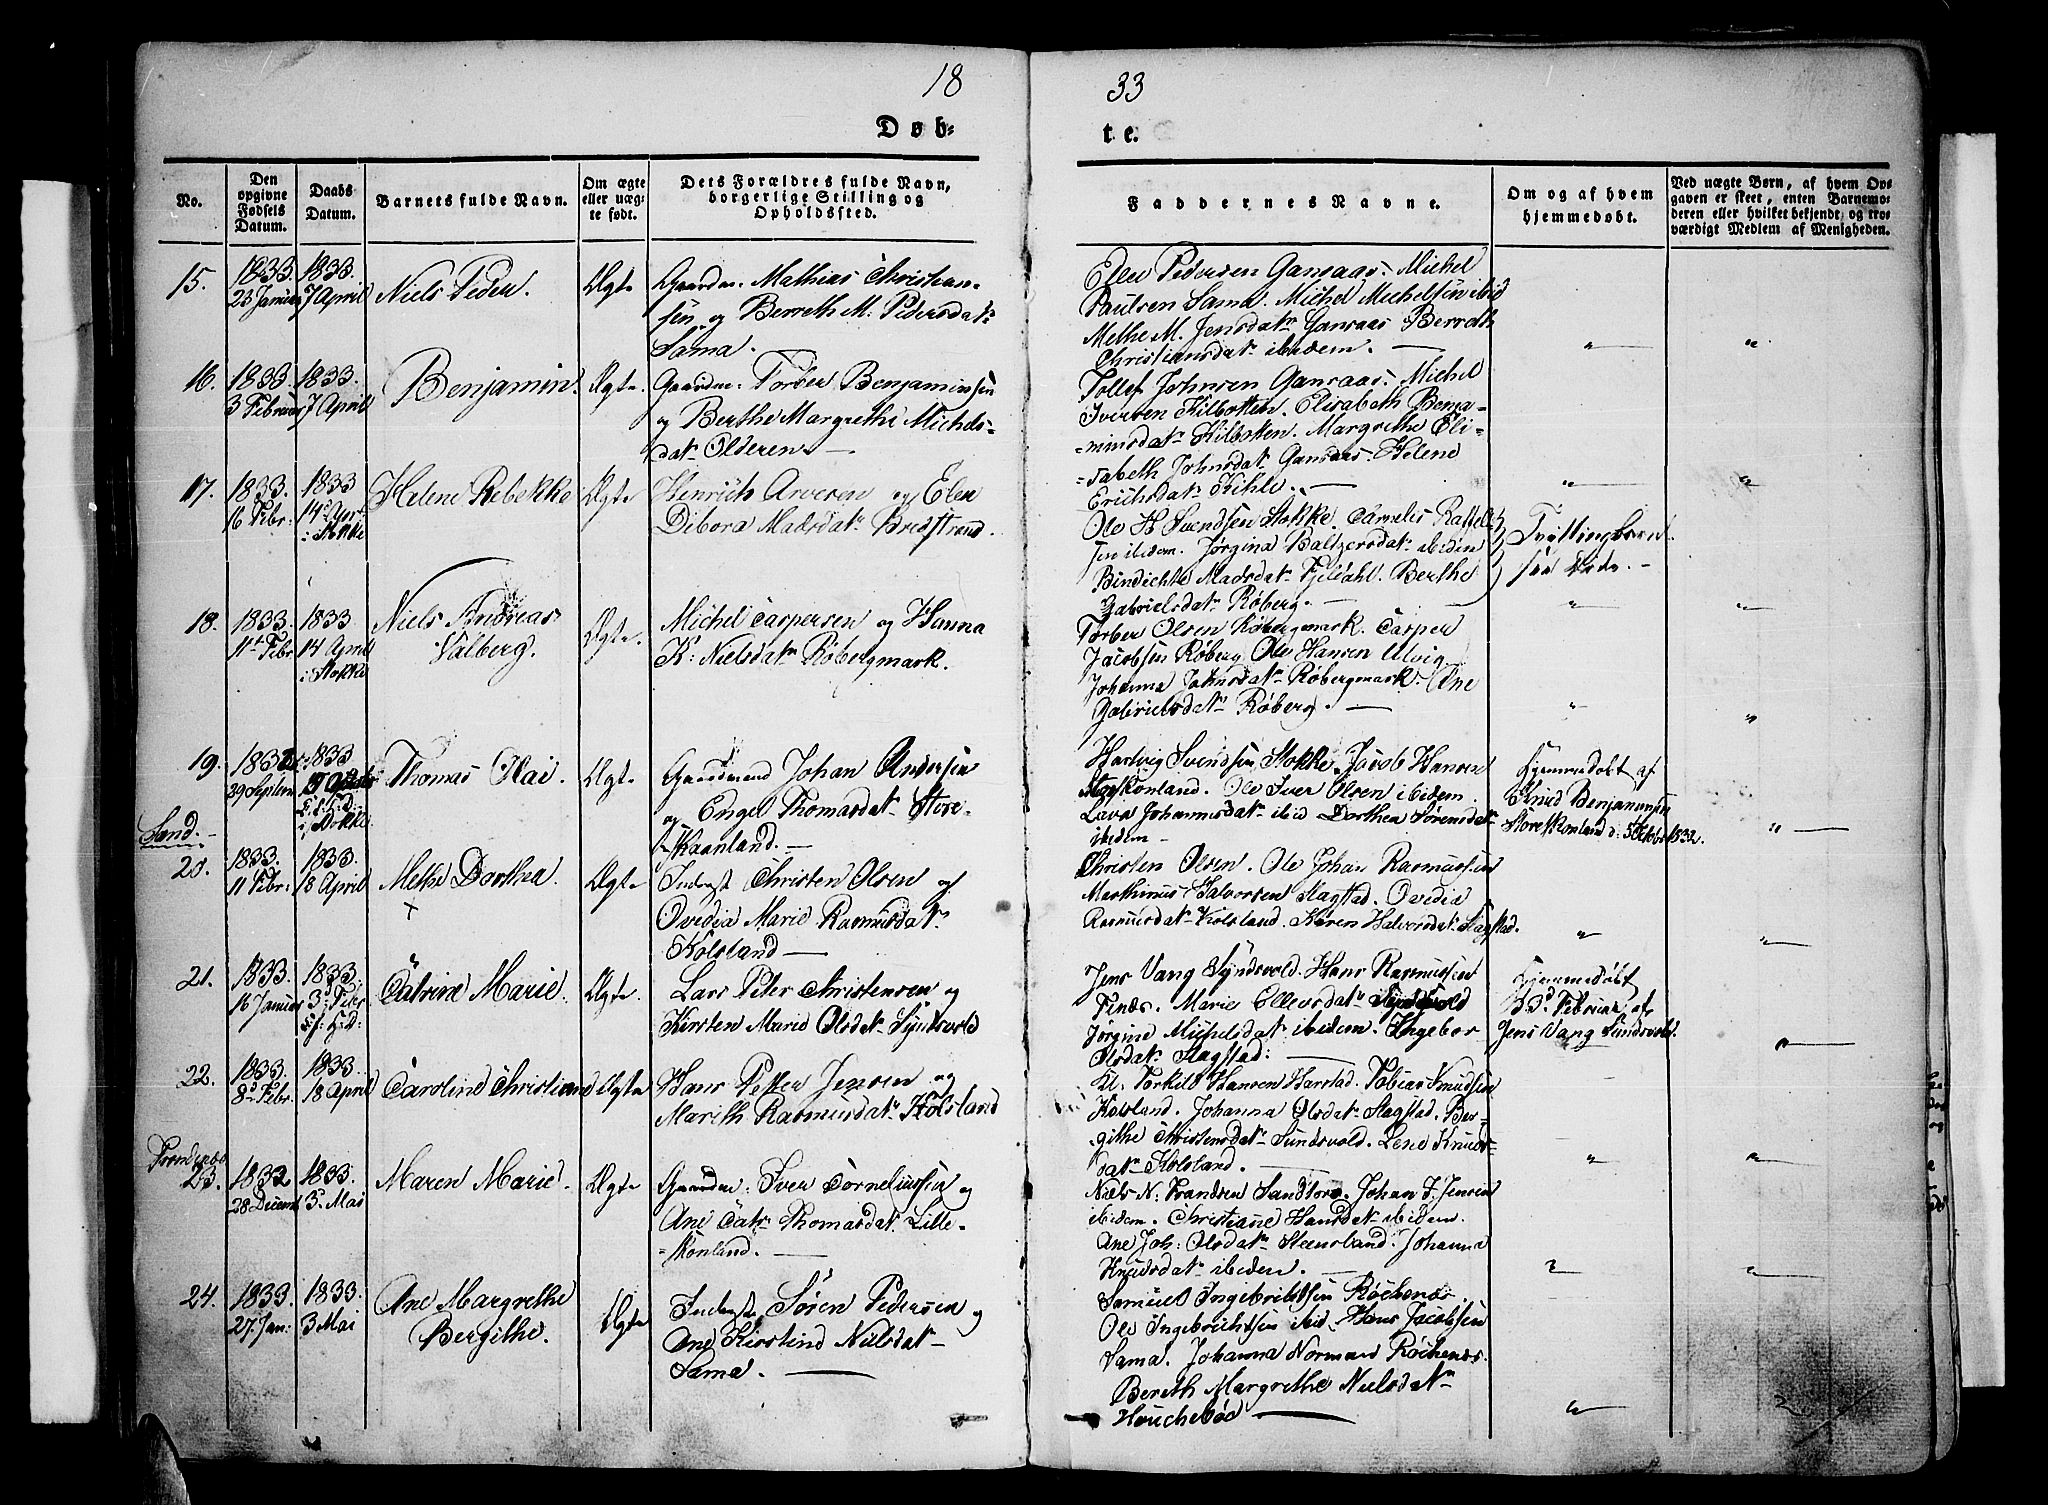 18 33
Døb- te.
No.
Den opgivne Fødsels Datum.
Daabs Datum.
Barnets fulde Navn.
Om ægte eller uægte født.
Dets Forældres fulde Navn, borgerlige Stilling og Opholdssted.
Faddernes Navne.
Om og af hvem hjemmedøbt.
Ved uægte Børn, af hvem Opgaven er skeet, enten Barnemoderen eller hvilket bekjendt og troværdigt Medlem af Menigheden.
15.
1833. 23 Januar
1833. 7 April
Niels Peder.
Ægte
Gaardm: Mathias Christian-
sen og Berreth M: Pedersdatr
Sama.
Elen Pedersen Gansaas. Michel
Paulsen Sama. Michel Michelsen ibid
Methe M. Jensdatr Gansaas Berreth
Christiansdatr ibidem.
16.
1833. 3 Februar
1833. 7 April
Benjamin.
Ægte.
Gaardm: Torber Benjaminsen
og Berthe Margrethe Michels-
datr Olderen.
Tollef Johnsen Gansaas. Michel
Iversen Kilbotten. Elisabeth Benja-
minsdatr Kilbotten. Margrethe Eli-
sabeth Johnsdatr Gansaas. Helene
Erichsdatr Kihle.
17.
1833. 16 Febr:
1833 14d April i Stokke
Helene Rebekke
Ægte
Henrich Arvesen og Elen
Debora Madsdatr Bredstrand.
Ole H Svendsen Stokke. Cornelis
sen ibidem. Jørgina Baltzersdatr ibidem
Bendichte Madsdatr Fjeldahl. Berthe
Gabrielsdatr Røberg.
Tvillingbarn
18.
1833. 11t Febr
1833 14 April i Stokke
Niels Andreas
Valberg.
Ægte.
Michel Caspersen og Hanna
K: Nielsdatr Røbergmark.
Torber Olsen Røbergmark. Casper
Jacobsen Røberg Ole Hansen Ulvig
Johanna Johnsdatr Røbergmark. Ane
Gabrielsdatr Røberg.
19.
1832 29 Septem
1833 i Stokke.
Thomas Olai.
Ægte.
Gaardmand Johan Andersen
og Engel Thomasdatr Store-
skaanland.
Hartvig Svendsen Stokke. Jacob Hansen
Ole Iver Olsen ibidem
Johannisdatr ibid Dorthea Sørensdatr
ibidem
Hjemmedøbt af
Knud Benjaminsen
Storeskonland d: 5 Octobr 1832.
Sand.
20.
1833. 11 Febr:
1833. 18 April
Methe Dorthea
Ægte
Inderst Christen Olsen og
Ovedia Marie Rasmusdatr
Kolsland
Christen Olsen. Ole Johan Rasmussen
Marthinus Halvorsen Slagstad. Ovedia
Rasmusdatr Kolsland. Karen Halvorsdatr Slagstad.
21.
1833. 16 Januar
1833. 3d Febr
Catrine Marie.
Ægte.
Lars Peter Christensen og
Kirsten Marie Olsdatr Syndsvold
Jens Vang Syndsvold. Hans Rasmussen
Finæs. Marie Ellevsdatr Syndsvold
Jørgine Michelsdatr ibidem. Ingebor
Olsdatr Slagstad:
Hjemmedøbt
3d Februar af
Jens Vang Sundsvold.
22.
1833. 8d Febr.
1833. 18 April
Caroline Christiane
Ægte
Hans Petter Jensen og
Marith Rasmusdatr Kolsland
Kl. Torkild Hansen Harstad. Tobias Knudsen
Kolsland. Johanna Olsdatr Slagstad. Ber-
githe Christensdatr Sundsvold. Lene Knuds-
datr Kolsland.
Trondenæs
23.
1832 28 Decemb
1833. 3d Mai
Maren Marie.
Ægte
Gaardm: Iver Corneliussen og
Ane Catr: Thomasdatr Lille-
skonland.
Niels N: Trondsen Sandtorv. Johan J. Jensen
ibidem. Christiane Hansdatr ibidem.
Ane Joh: Olsdatr Steensland. Johanna
Knudsdatr ibidem.
24.
1833. 27. Jan:
1833. 3 Mai
Ane Margrethe
Bergithe.
Ægte
Inderst Søren Pedersen og
Ane Kirstine Nielsdatr
Sama.
Samuel Ingebrigtsen Røchenæs.
Ole Ingebrichtsen ibid. Hans Jacobsen
Sama. Johanna Normans Røchenæs.
Bereth Margrethe Nielsdatr
Houchebøe